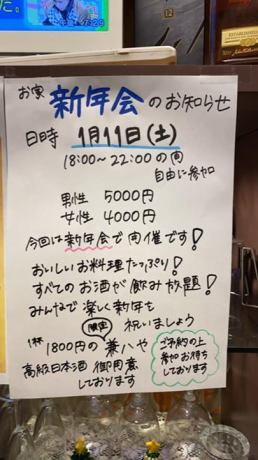 お寅 新年会のお知らせ
日時 1月11日(土)
18:00〜22:00の間
自由に参加
男性 5000円
女性 4000円
今回は新年会で開催です!
おいしいお料理たっぷり!
すべてのお酒が飲み放題!
みんなで楽しく新年を
祝いましょう
限定
1杯 1800円の兼八や
高級日本酒 御用意
しております
ご予約の上
参加お待ち
しております
ESTABLISHED